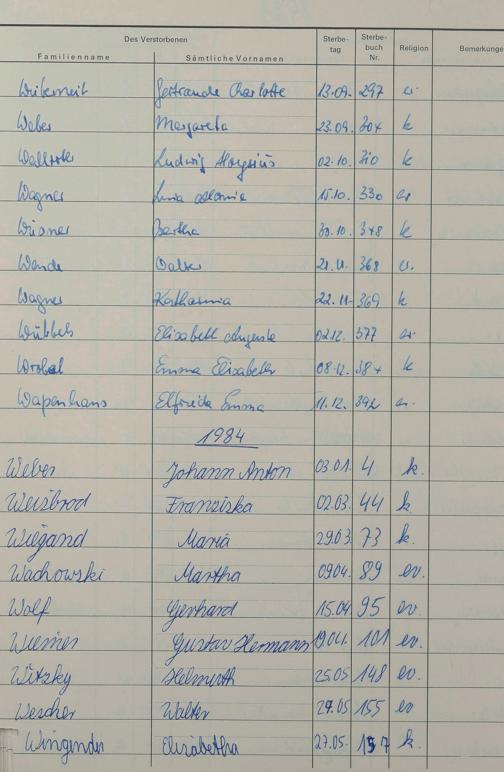 Des Verstorbenen
Familienname Sämtliche Vornamen Sterbe-tag Sterbe-buch Nr. Religion Bemerkunge
Gertraude Charlotte 13.09. 297 ev.
Weber Margareta 23.09. 304 k
Ludwig Aloysius 02.10. 310 k
Wagner 15.10. 330 ev
Wüsner Bertha 30.10. 348 k
Wende Walter 21.11. 368 ev.
Wagner Katharina 22.11. 369 k
Wübbels Elisabeth Auguste 02.12. 377 ev.
Wrobel Emma Elisabeth 08.12. 384 k
Wapenhans Elfrieda Emma 11.12. 392 ev.
1984
Weber Johann Anton 03.01. 4 k.
Weisbrod Franziska 02.03. 44 k.
Wiegand Maria 29.03. 73 k.
Wachowski Martha 09.04. 89 ev.
Wolf Gerhard 15.04. 95 ev.
Wiemer Gustav Hermann 19.04. 101 ev.
Witzky Helmuth 25.05 148 ev.
Wescher Walter 27.05 155 ev
Wingender Elisabetha 27.05. 157 k.